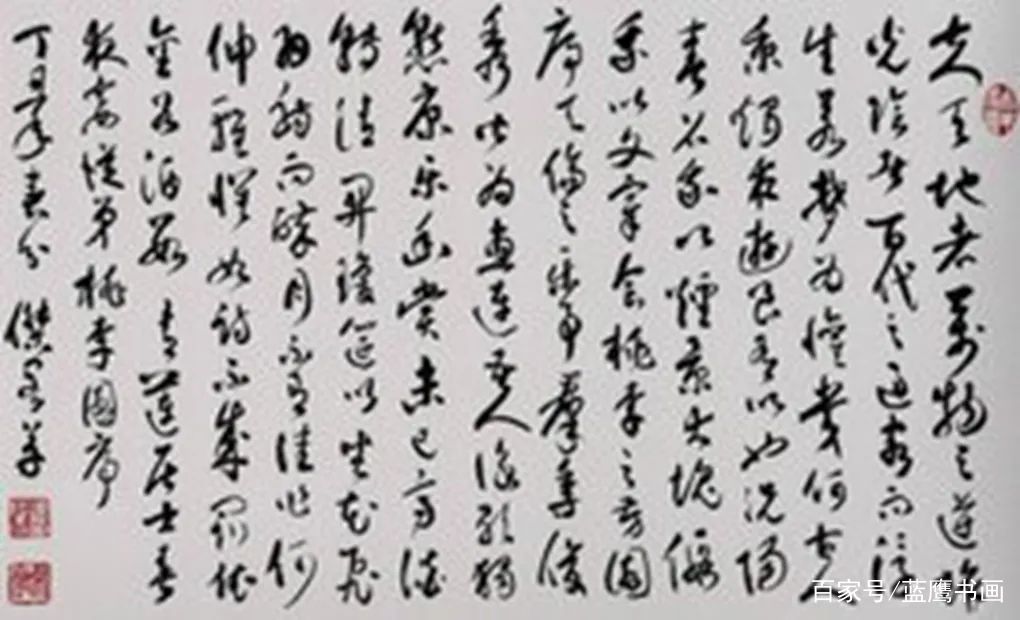 夫天地者萬物之逆旅
光陰者百代之過客而浮
生若夢為懽幾何古人
秉燭夜遊良有以也況陽
春召我以煙景大塊假
我以文章會桃李之芳園
序天倫之樂事群季俊
秀皆為惠連吾人詠歌獨
慚康樂幽賞未已高談
轉清開瓊筵以坐花飛
羽觴而醉月不有佳作何
伸雅懷如詩不成罰依
金谷酒數 青蓮居士春
夜宴從弟桃李園序
丁年春分
百家号/蓝鹰书画